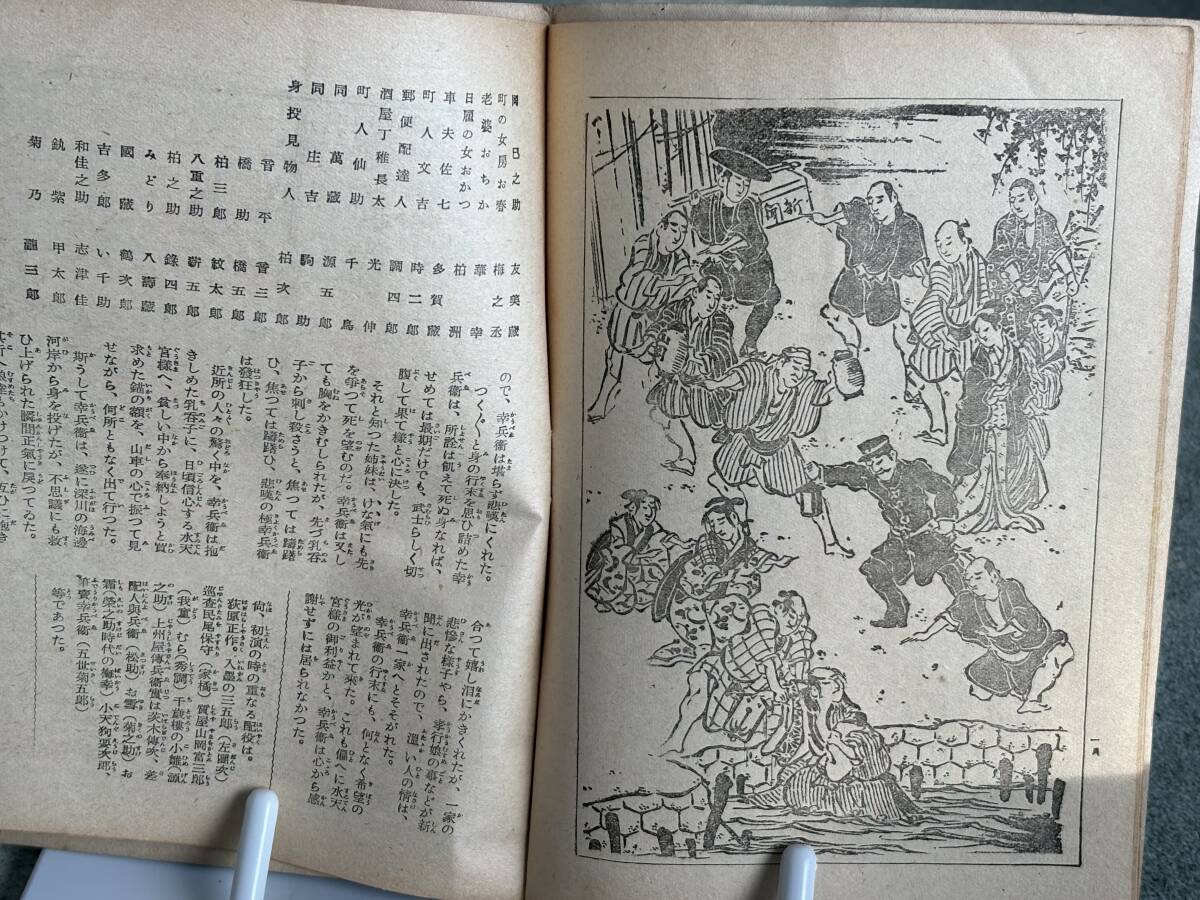 同 巳之助 友美藏
町の女房お春 梅之丞
老婆おちか 華幸
日雇の女おかつ 柏洲
車夫佐七 多賀藏
町人文吉 時二郎
郵便配達人 調四郎
酒屋丁稚長太 光伸
町人仙助 千鳥
同 萬藏 源五郎
同 庄吉 駒助
身投見物人 柏次郎
音平 音三郎
橋助 橋五郎
柏三郎 紋太郎
八重之助 新五郎
柏之助 錄四郎
みどり 八壽藏
國藏 鶴次郎
吉多郎 い千助
和佳之助 志津佳
紫 甲太郎
菊乃 瀧三郎
ので、幸兵衞は堪らず悲嘆にくれた。
つく〴〵と身の行末を思ひ詰めた幸
兵衞は、所詮は飢えて死ぬ身なれば、
せめては最期だけでも、武士らしく切
腹して果て樣と心に決した。
それと知つた姉妹は、けな氣にも先
を爭つて死を望むのだ。幸兵衞は又し
ても胸をかきむしられたが、先づ乳呑
子から刺し殺さうと、焦つては躊躇
ひ、焦つては躊躇ひ、悲嘆の極幸兵衞
は發狂した。
近所の人々の驚く中を、幸兵衞は抱
きしめた乳呑子に、日頃信心する水天
宮樣へ、貧しい中から奉納しようと買
求めた錨の額を、山車の心で振つて見
せながら、何所ともなく出て行つた。
斯うして幸兵衞は、遂に深川の海邊
河岸から身を投げたが、不思議にも救
ひ上げられた瞬間正氣に戾つてゐた。
其所へ娘達もかけつけて、互ひに抱き
合つて嬉し泪にかきくれたが、一家の
悲慘な樣子やら、孝行娘の事などが新
聞に出されたので、溫い人の情は、
幸兵衞一家へとそそがれた。
幸兵衞の行末にも、何となく希望の
光が望まれて來た。これも偏へに水天
宮樣の御利益かと、幸兵衞は心から感
謝せずには居られなかつた。
尙、初演の時の重なる配役は。
荻原正作。入墨の三五郎（左團次）
巡査民尾保守（家橘）質屋山岡富三郎
（我童）むら（秀調）千歲樓の小雛（源
之助）上州屋傳兵衞實は茨木傳次、差
配人與兵衞（松助）お雪（菊之助）お
霜（榮之助時代の梅幸）小天狗要次郎、
筆賣幸兵衞（五世菊五郎）
等であつた。
新聞